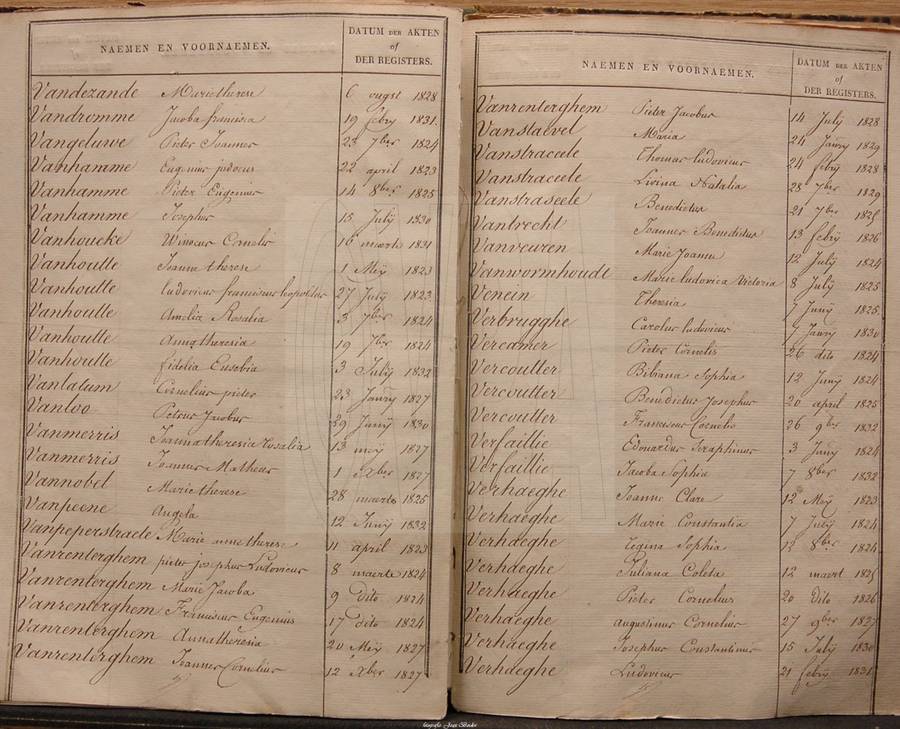 NAEMEN EN VOORNAEMEN. DATUM DER AKTEN of DER REGISTERS.
Vandezande Marie therese 6 ougst 1828
Vandromme Jacoba francisca 19 febry 1831.
Vangeluwe Pieter Joannes 23 7ber 1824
Vanhamme Eugenius judocus 22 april 1823
Vanhamme Pieter Eugenius 14 8ber 1825
Vanhamme Josephus 15 July 1830
Vanhoucke Winocus Cornelis 16 maerte 1831
Vanhoutte Joanna therese 1 Meÿ 1823
Vanhoutte ludovicus franciscus leopoldus 27 July 1823
Vanhoutte Amelia Rosalia 3 7ber 1824
Vanhoutte Annatheresia 19 7ber 1824
Vanhoutte fidelia Eusebia 3 July 1832
Vanlatum Cornelius pieter 23 Janry 1827
Vanloo Petrus Jacobus 29 Junÿ 1830
Vanmerris Joannatheresia rosalia 13 meÿ 1827
Vanmerris Joannes Matheus 1 Xber 1827
Vannobel Marie therese 28 maerte 1825
Vanpoene Angela 12 Junÿ 1832
Vanpeperstraete Marie anne therese 11 april 1823
Vanrenterghem pieter josephus Ludovicus 8 maerte 1824
Vanrenterghem Marie Jacoba 9 dito 1824
Vanrenterghem Franciscus Eugenius 17 dito 1824
Vanrenterghem Annatheresia 20 Meÿ 1827
Vanrenterghem Joannes Cornelius 12 Xber 1827
NAEMEN EN VOORNAEMEN. DATUM DER AKTEN of DER REGISTERS.
Vanrenterghem Pieter Jacobus 14 July 1828
Vanstaevel Maria 24 Janry 1829
Vanstraceele Thomas ludovicus 24 febry 1828
Vanstraceele Livina Natalia 28 7ber 1829
Vanstraseele Benedictus 21 7ber 1825
Vantrecht Joannes Benedictus 13 febrÿ 1826
Vanveuren Marie Joanna 12 July 1824
Vanwormhoude Marie ludovica Victoria 8 July 1825
Venein Theresia 7 Junÿ 1825
Verbrugghe Carolus ludovicus 7 Janry 1830
Vercamer Pieter Cornelis 26 dito 1824
Vercoutter Bibiana Sophia 12 Junÿ 1824
Vercoutter Benedictus Josephus 20 april 1825
Vercoutter Franciscus Cornelis 26 9ber 1832
Verfaillie Edouardus Seraphinus 3 Junÿ 1824
Verfaillie Jacoba Sophia 7 8ber 1832
Verhaeghe Joanna Clara 12 Meÿ 1823
Verhaeghe Marie Constantia 7 July 1824
Verhaeghe regina Sophia 13 8ber 1824
Verhaeghe Juliana Coleta 12 maert 1825
Verhaeghe Pieter Cornelius 20 dito 1826
Verhaeghe augustinus Cornelius 27 9ber 1827
Verhaeghe Josephus Constantinus 15 July 1830
Verhaeghe Ludovicus 21 febry 1831